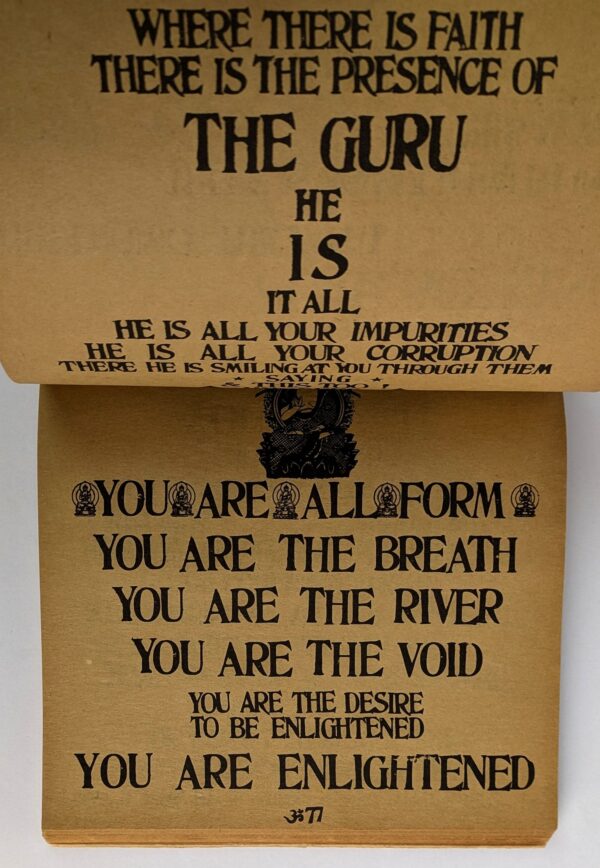 WHERE THERE IS FAITH
THERE IS THE PRESENCE OF
THE GURU
HE
IS
IT ALL
HE IS ALL YOUR IMPURITIES
HE IS ALL YOUR CORRUPTION
THERE HE IS SMILING AT YOU THROUGH THEM
* SAYING *
& THIS TOO!
YOU ARE ALL FORM
YOU ARE THE BREATH
YOU ARE THE RIVER
YOU ARE THE VOID
YOU ARE THE DESIRE
TO BE ENLIGHTENED
YOU ARE ENLIGHTENED
ॐ 77